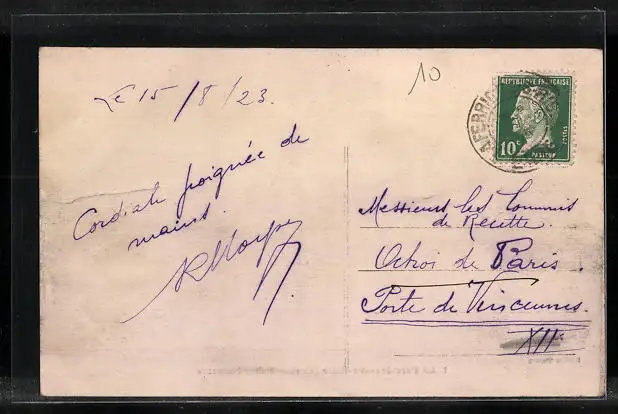 10
Le 15/8/23.
Cordiale poignée de
mains.
REPUBLIQUE FRANÇAISE
10c
POSTES
PASTEUR
Messieurs les Commis
de Recette.
Octroi de Paris.
Porte de Vincennes.
XIIe